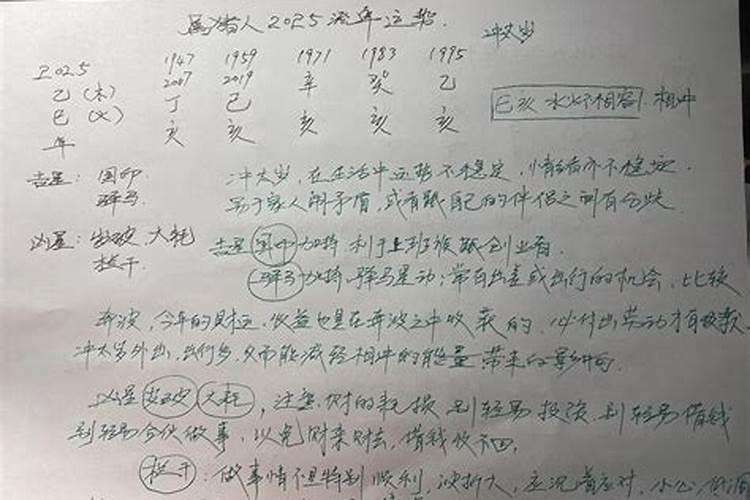 属猪人2025流年运势. 冲太岁
1947 1959 1971 1983 1995
2025 2007 2019 辛 癸 乙
乙(木) 丁 己
巳(火) 亥 亥 亥 亥 亥 巳亥 水火不相容 相冲
年
吉星: 国印 冲太岁, 在生活中运势不稳定, 情绪亦不稳定.
驿马 易于家人闹矛盾, 或者跟自己的伴侣之间有分歧
凶星: 岁破, 大耗 吉星国印加持 利于上班族跟创业者.
栏干. 驿马加持, 驿马星动; 常有出差或出行的机会, 比较
奔波, 今年的财运, 收益也是在奔波之中收获的, 必付出劳动才有收获
冲太岁外出, 出行多, 反而能减轻相冲的能量带来的影响.
凶星岁破大耗, 注意财的耗损 别轻易投资, 别轻易借钱
别轻易合伙做事, 以免财来财去, 借钱收不回,
栏干: 做事情不是特别顺利, 波折大, 应沉着应对, 小心